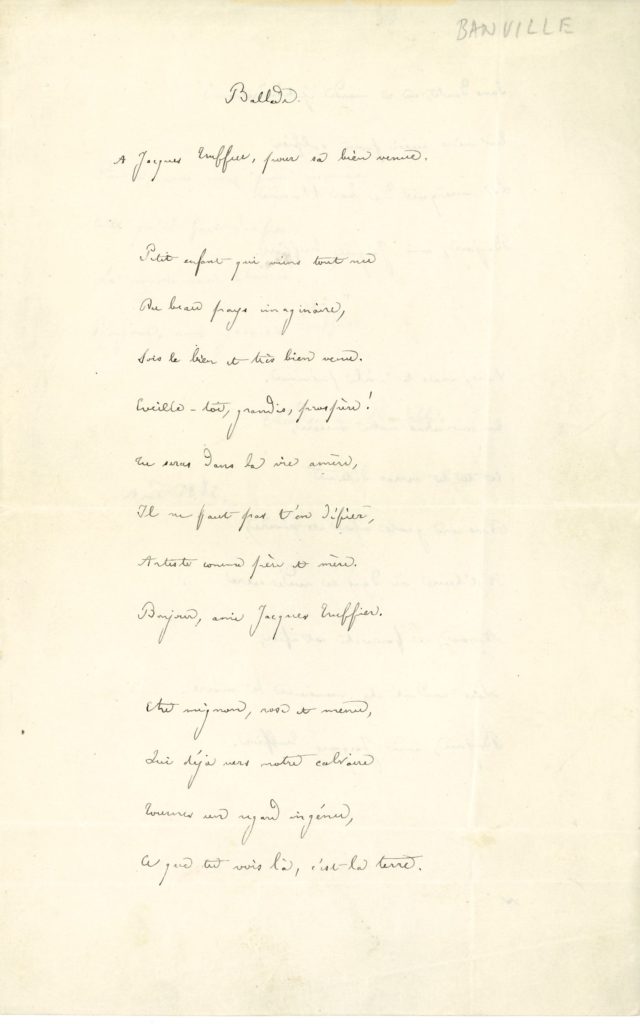 BANVILLE
Ballade.
A Jacques Truffier, pour sa bien venue.
Petit enfant qui viens tout nu
Du beau pays imaginaire,
Sois le bien et très bien venu.
Eveille-toi, grandis, prospère!
Tu seras dans la vie amère,
Il ne faut pas t'en défier,
Artiste comme père et mère.
Bonjour, ami Jacques Truffier.
Etre mignon, rose et menu,
Qui déjà vers notre calvaire
Tournes un regard ingénu,
Ce que tu vois là, c'est la terre.